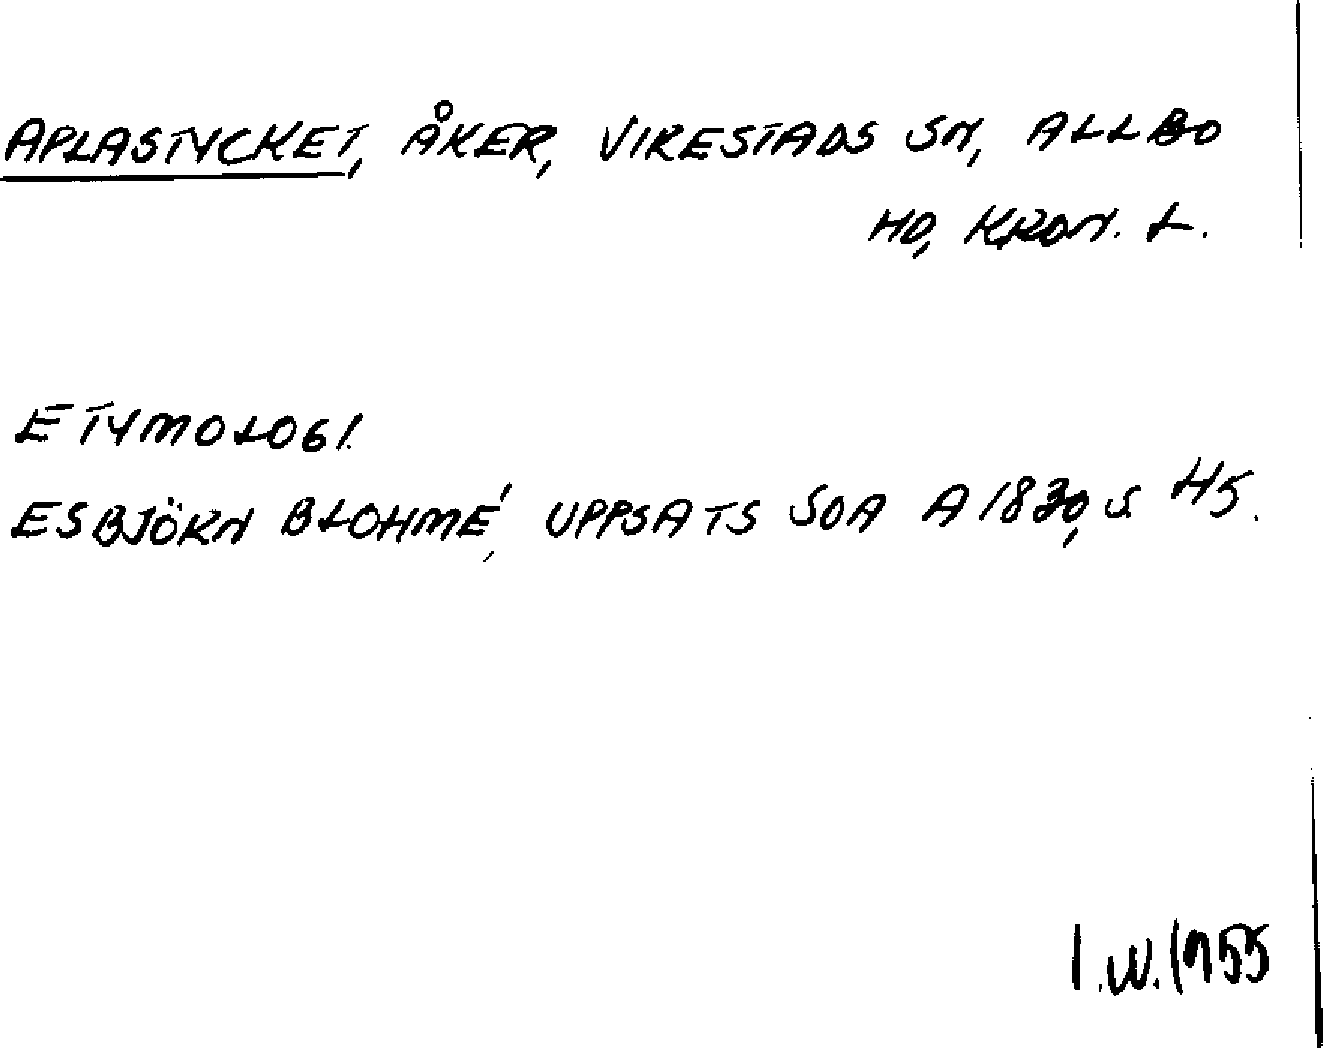 APLASTYCKET, ÅKER, VIRESTADS SN, ALLBO
HD, KRON. L.
ETYMOLOGI.
ESBJÖRN BLOHMÉ, UPPSATS SOA A 1830, S 45.
I.W. 1955